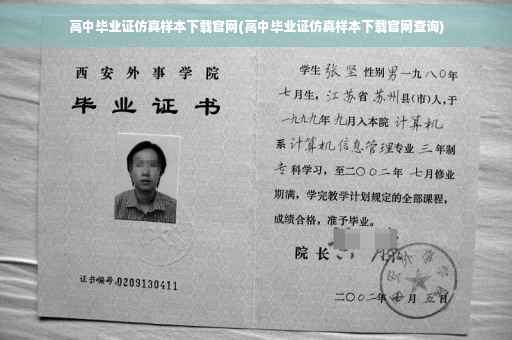 高中毕业证仿真样本下载官网(高中毕业证仿真样本下载官网查询)
西安外事学院
毕业证书
证书编号:0209130411
学生 张坚 性别 男 一九八〇年
七月生，江苏省 苏州县(市)人，于
一九九九年 九月入本院 计算机
系 计算机信息管理专业 三 年制
专科学习，至二〇〇二年 七月修业
期满，学完教学计划规定的全部课程，
成绩合格，准予毕业。
院长
二〇〇二年 月 五日